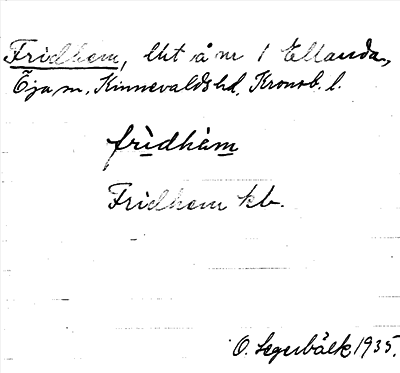 Fridhem, lht å nr 1 Ellanda,
Tja sn, Kinnevalds hd, Kronob. l.
frìdhä̀m
Fridhem kb.
O. Segerbäck 1935.